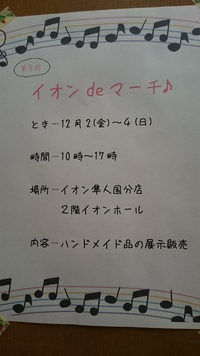 第8回
イオン de マーチ♪
とき…12月2(金)～4(日)
時間…10時～17時
場所…イオン隼人国分店
2階イオンホール
内容…ハンドメイド品の展示販売